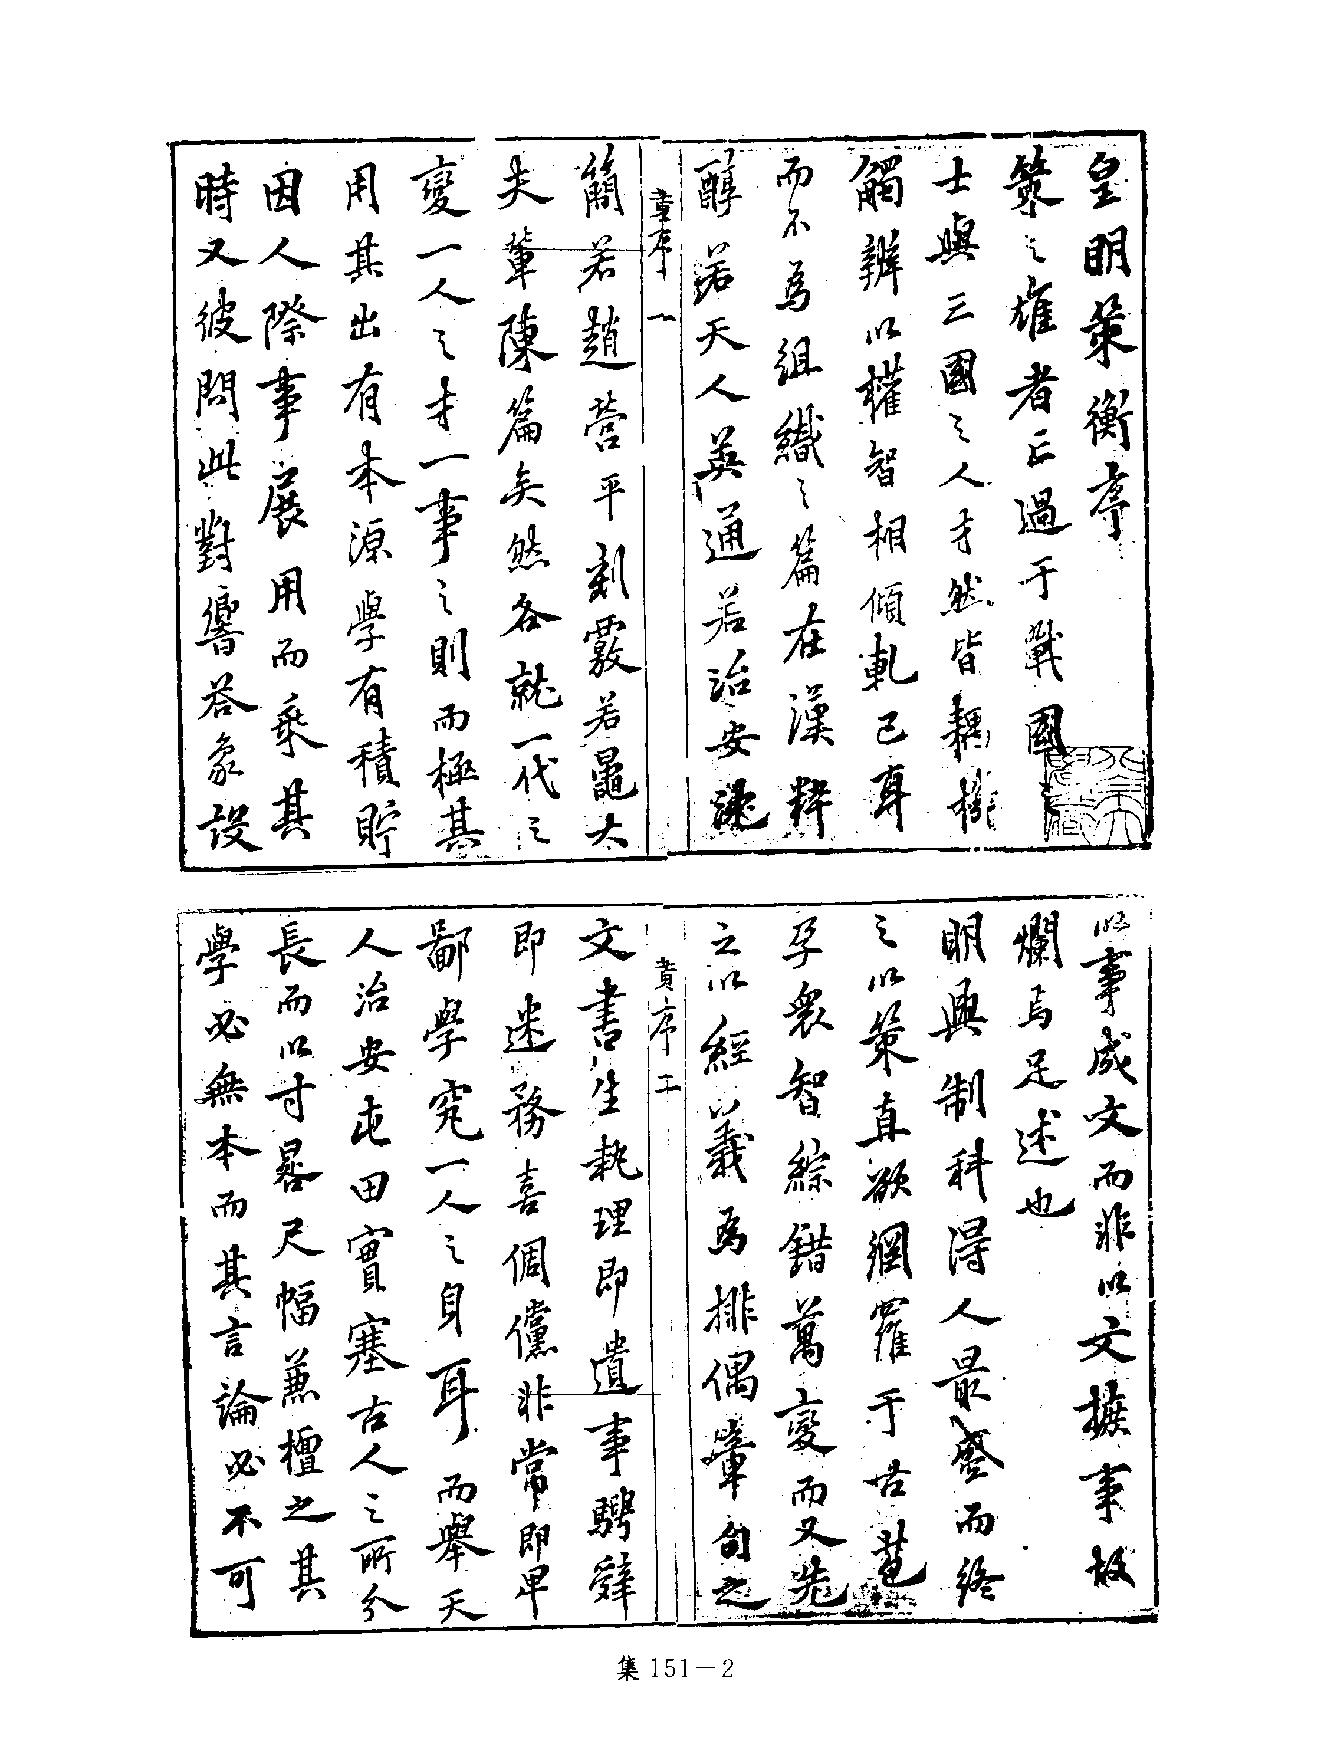 皇明策衡序
策之雄者亡過于戰國
士與三國之人才然皆耦機
觸辨以權智相傾軋已耳
而不為組織之篇在漢粹
醇若天人英通若治安
簡若趙營平剴覈若鼂大
夫輩陳篇矣然各就一代之
變一人之才一事之則而極其
用其出有本源學有積貯
因人際事展用而乘其
時又彼問此對響答象設
章序 一
以事成文而非以文摭事故
爛焉足述也
明興制科得人最盛而終
之以策直欲網羅于古苞
孕衆智綜錯萬變而又先
之以經義為排偶章句之
文書生執理即遺事騁辭
即迷務喜倜儻非常即卑
鄙學究一人之身耳而舉天
人治安屯田實塞古人之所分
長而以寸晷尺幅兼擅之其
學必無本而其言論必不可
黄序 二
集 151－2